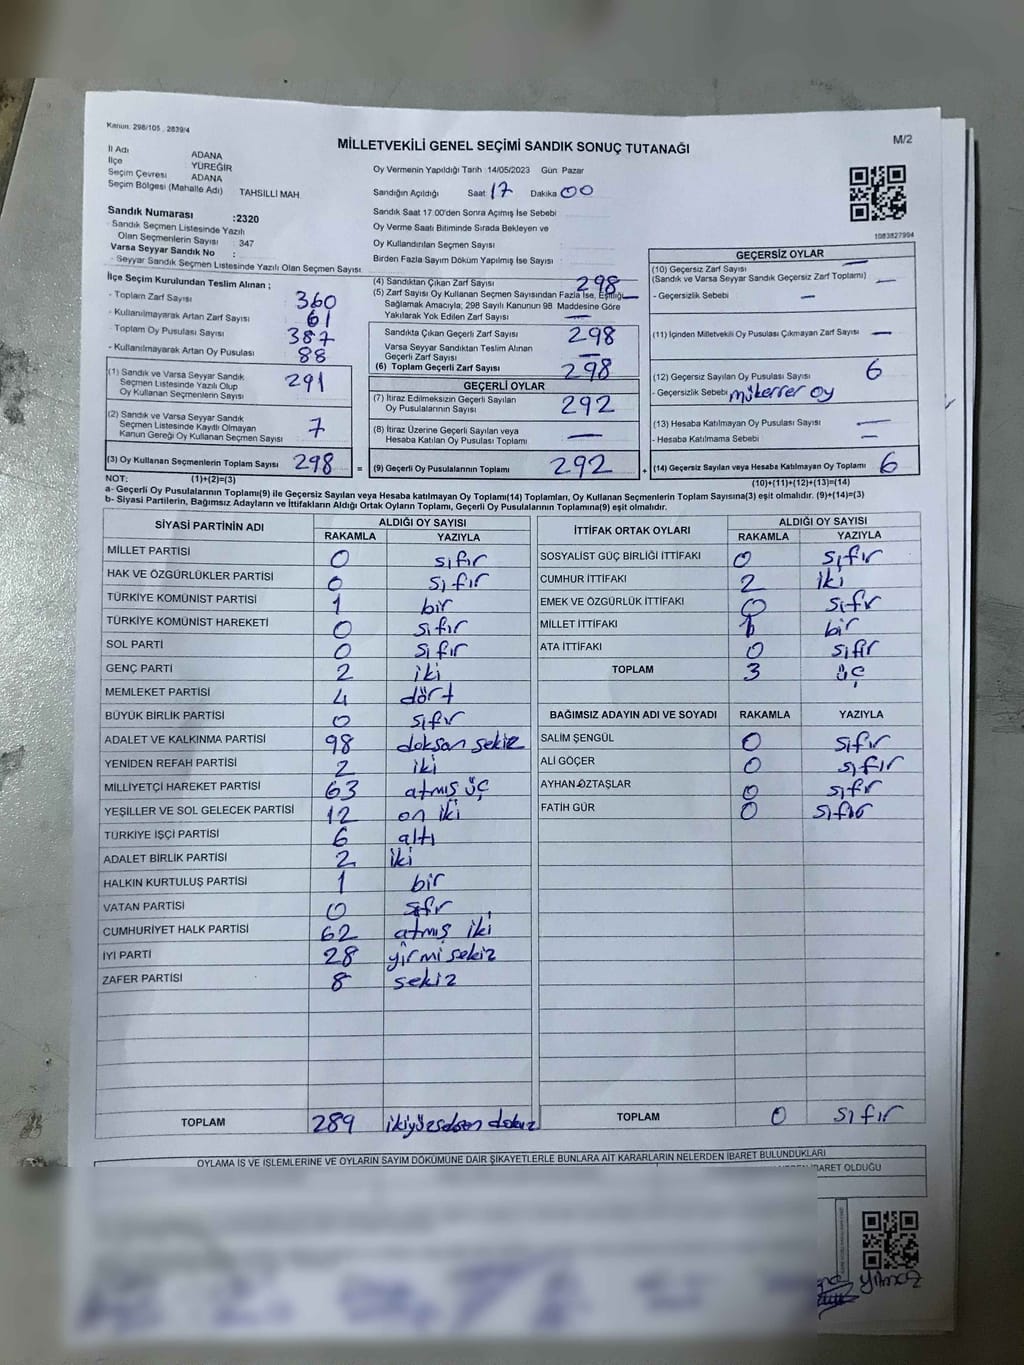 Kanun: 298/105 , 2839/4
MİLLETVEKİLİ GENEL SEÇİMİ SANDIK SONUÇ TUTANAĞI
M/2
İl Adı ADANA
İlçe YÜREĞİR
Seçim Çevresi ADANA
Seçim Bölgesi (Mahalle Adı) TAHSİLLİ MAH
Sandık Numarası :2320
Sandık Seçmen Listesinde Yazılı
Olan Seçmenlerin Sayısı : 347
Varsa Seyyar Sandık No :
- Seyyar Sandık Seçmen Listesinde Yazılı Olan Seçmen Sayısı
Oy Vermenin Yapıldığı Tarih 14/05/2023 Gün Pazar
Sandığın Açıldığı Saat 17 Dakika 00
Sandık Saat 17.00'den Sonra Açımış İse Sebebi
Oy Verme Saati Bitiminde Sırada Bekleyen ve
Oy Kullandırılan Seçmen Sayısı :
Birden Fazla Sayım Döküm Yapılmış İse Sayısı :
1083827994
İlçe Seçim Kurulundan Teslim Alınan ;
- Toplam Zarf Sayısı 360
- Kullanılmayarak Artan Zarf Sayısı 61
- Toplam Oy Pusulası Sayısı 387
- Kullanılmayarak Artan Oy Pusulası 88
(1) Sandık ve Varsa Seyyar Sandık
Seçmen Listesinde Yazılı Olup
Oy Kullanan Seçmenlerin Sayısı 291
(2) Sandık ve Varsa Seyyar Sandık
Seçmen Listesinde Kayıtlı Olmayan
Kanun Gereği Oy Kullanan Seçmen Sayısı 7
(3) Oy Kullanan Seçmenlerin Toplam Sayısı 298 =
(4) Sandıktan Çıkan Zarf Sayısı 298
(5) Zarf Sayısı Oy Kullanan Seçmen Sayısından Fazla İse, Eşitliği
Sağlamak Amacıyla; 298 Sayılı Kanunun 98. Maddesine Göre
Yakılarak Yok Edilen Zarf Sayısı : —
Sandıkta Çıkan Geçerli Zarf Sayısı 298
Varsa Seyyar Sandıktan Teslim Alınan
Geçerli Zarf Sayısı —
(6) Toplam Geçerli Zarf Sayısı 298
GEÇERLİ OYLAR
(7) İtiraz Edilmeksizin Geçerli Sayılan
Oy Pusulalarının Sayısı 292
(8) İtiraz Üzerine Geçerli Sayılan veya
Hesaba Katılan Oy Pusulaları Toplamı —
(9) Geçerli Oy Pusulalarının Toplamı 292 +
GEÇERSİZ OYLAR
(10) Geçersiz Zarf Sayısı —
(Sandık ve Varsa Seyyar Sandık Geçersiz Zarf Toplamı) —
- Geçersizlik Sebebi —
(11) İçinden Milletvekili Oy Pusulası Çıkmayan Zarf Sayısı —
(12) Geçersiz Sayılan Oy Pusulası Sayısı 6
- Geçersizlik Sebebi mükerrer oy
(13) Hesaba Katılmayan Oy Pusulası Sayısı —
- Hesaba Katılmama Sebebi —
(14) Geçersiz Sayılan veya Hesaba Katılmayan Oy Toplamı 6
NOT: (1)+(2)=(3) (10)+(11)+(12)+(13)=(14)
a- Geçerli Oy Pusulalarının Toplamı(9) ile Geçersiz Sayılan veya Hesaba katılmayan Oy Toplamı(14) Toplamları, Oy Kullanan Seçmenlerin Toplam Sayısına(3) eşit olmalıdır. (9)+(14)=(3)
b- Siyasi Partilerin, Bağımsız Adayların ve İttifakların Aldığı Ortak Oyların Toplamı, Geçerli Oy Pusulalarının Toplamına(9) eşit olmalıdır.
SİYASİ PARTİNİN ADI ALDIĞI OY SAYISI
RAKAMLA YAZIYLA
MİLLET PARTİSİ 0 sıfır
HAK VE ÖZGÜRLÜKLER PARTİSİ 0 sıfır
TÜRKİYE KOMÜNİST PARTİSİ 1 bir
TÜRKİYE KOMÜNİST HAREKETİ 0 sıfır
SOL PARTİ 0 sıfır
GENÇ PARTİ 2 iki
MEMLEKET PARTİSİ 4 dört
BÜYÜK BİRLİK PARTİSİ 0 sıfır
ADALET VE KALKINMA PARTİSİ 98 doksan sekiz
YENİDEN REFAH PARTİSİ 2 iki
MİLLİYETÇİ HAREKET PARTİSİ 63 atmış üç
YEŞİLLER VE SOL GELECEK PARTİSİ 12 on iki
TÜRKİYE İŞÇİ PARTİSİ 6 altı
ADALET BİRLİK PARTİSİ 2 iki
HALKIN KURTULUŞ PARTİSİ 1 bir
VATAN PARTİSİ 0 sıfır
CUMHURİYET HALK PARTİSİ 62 atmış iki
İYİ PARTİ 28 yirmi sekiz
ZAFER PARTİSİ 8 sekiz
TOPLAM 289 ikiyüzseksen dokuz
İTTİFAK ORTAK OYLARI ALDIĞI OY SAYISI
RAKAMLA YAZIYLA
SOSYALİST GÜÇ BİRLİĞİ İTTİFAKI 0 sıfır
CUMHUR İTTİFAKI 2 iki
EMEK VE ÖZGÜRLÜK İTTİFAKI 0 sıfır
MİLLET İTTİFAKI 1 bir
ATA İTTİFAKI 0 sıfır
TOPLAM 3 üç
BAĞIMSIZ ADAYIN ADI VE SOYADI RAKAMLA YAZIYLA
SALİM ŞENGÜL 0 sıfır
ALİ GÖÇER 0 sıfır
AYHAN ÖZTAŞLAR 0 sıfır
FATİH GÜR 0 sıfır
TOPLAM 0 sıfır
OYLAMA İŞ VE İŞLEMLERİNE VE OYLARIN SAYIM DÖKÜMÜNE DAİR ŞİKAYETLERLE BUNLARA AİT KARARLARIN NELERDEN İBARET BULUNDUKLARI
İBARET OLDUĞU
Yılmaz